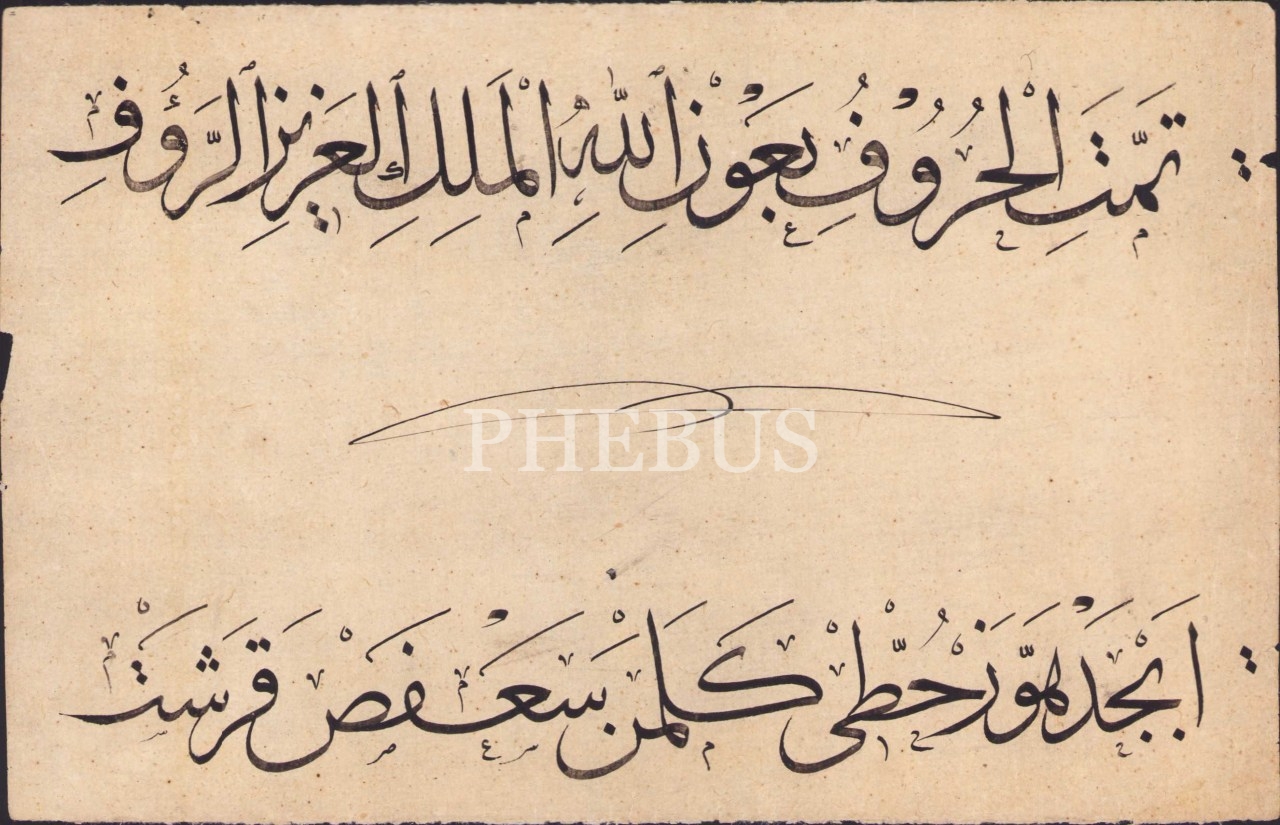 تَمَّتِ الْحُرُوْفُ بِعَوْنِ ٱللّٰهِ الْمَلِكِ ٱلعَزِيزِ ٱلرَّؤُفِ
PHEBUS
اَبْجَدْ هَوَّزْ حُطِّىْ كَلَمَنْ سَعَفَصْ قَرَشَتْ